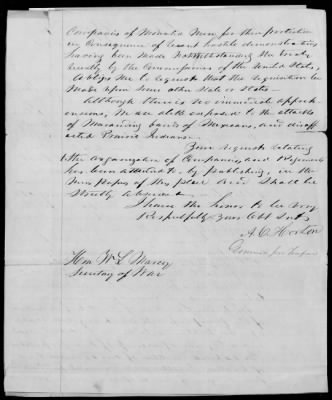 Companies of Mounted Men for their protection
in Consequence of recent hostile demonstrations
having been made Notwithstanding the treaty
by the Commissioners of the United States,
Obliges me to request that the requisition be
Made upon Some other State or States—
Although there is no immediate appreh-
ensions, We are still exposed to the attacks
of Marauding bands of Mexicans, and disaff
ected Prairie Indians.
Your request relating
to the organization of Companies, and Regiments
has been attended to, by publishing, in the
News papers of this place and Shall be
Strictly
I have the honor to be very
Respectfully Your Obt Servt
A. C. Horton
Hon W. L. Marcy
Secretary of War